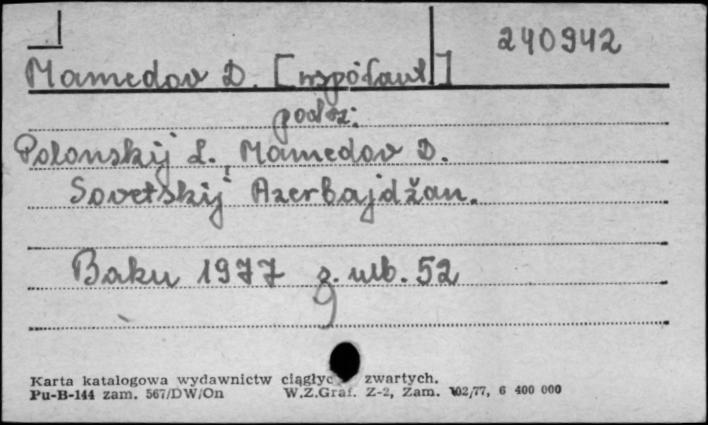 240942
Mamedov D. [współaut]
pod:
Polonskij L., Mamedov D.
Sovetskij Azerbajdžan.
Baku 1977 s. ulb. 52
Karta katalogowa wydawnictw ciągłyc zwartych.
Pu-B-144 zam. 567/DW/On W.Z.Graf. Z-2, Zam. 102/77, 6 400 000